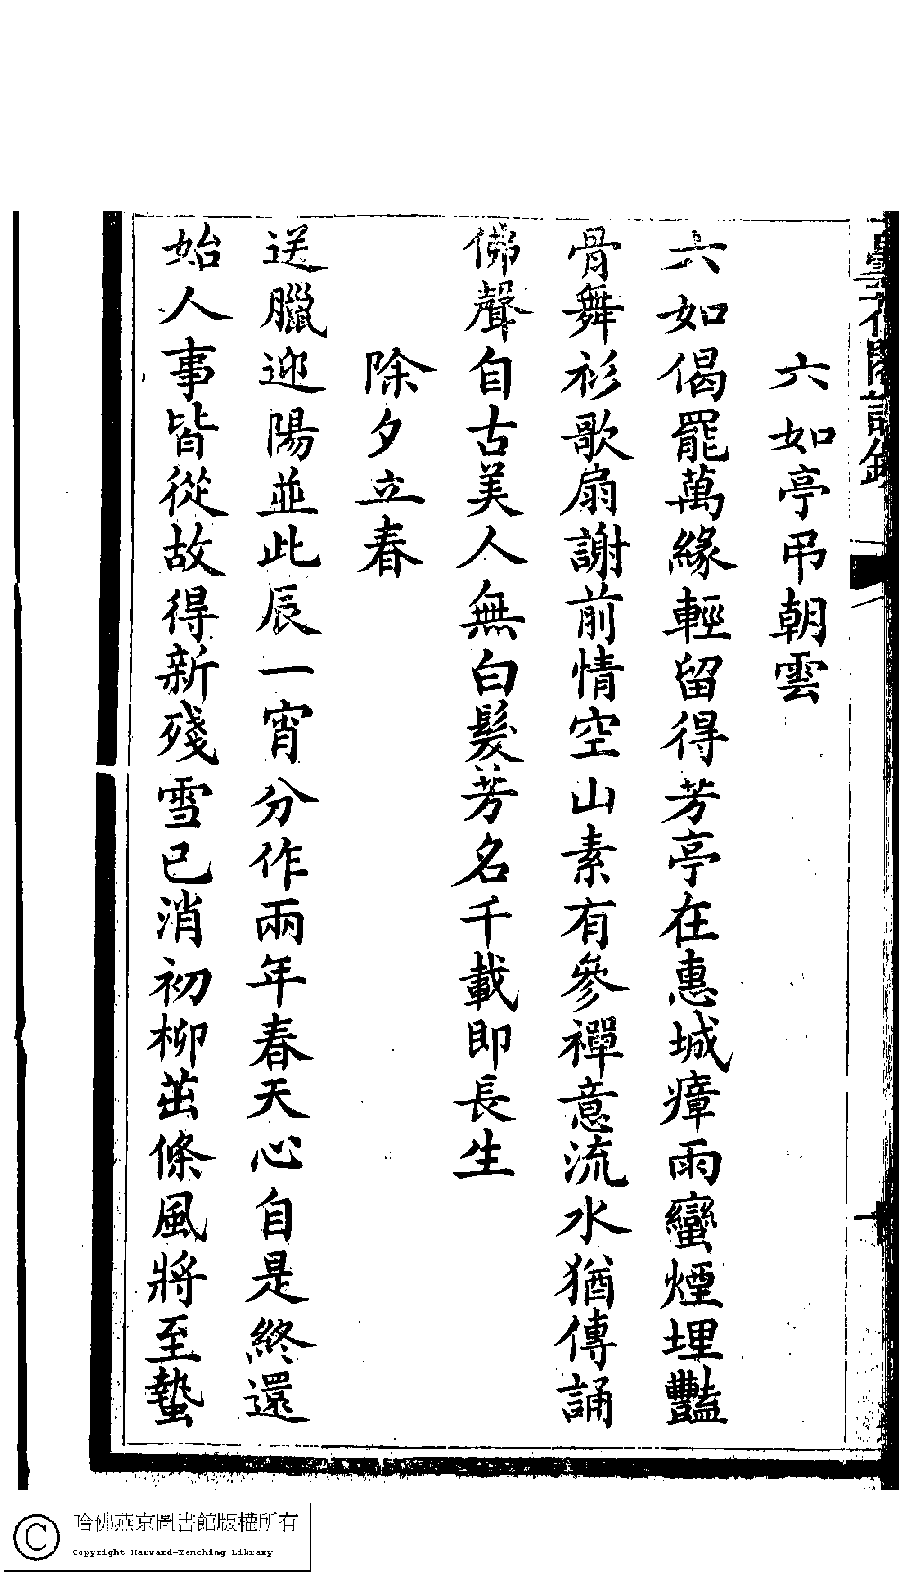 曇花閣詩鈔
六如亭弔朝雲
六如偈罷萬緣輕留得芳亭在惠城瘴雨蠻煙埋豔
骨舞衫歌扇謝前情空山素有參禪意流水猶傳誦
佛聲自古美人無白髮芳名千載即長生
除夕立春
送臘迎陽並此辰一宵分作兩年春天心自是終還
始人事皆從故得新殘雪已消初柳茁條風將至蟄
哈佛燕京圖書館版權所有
Copyright Harvard-Yenching Library